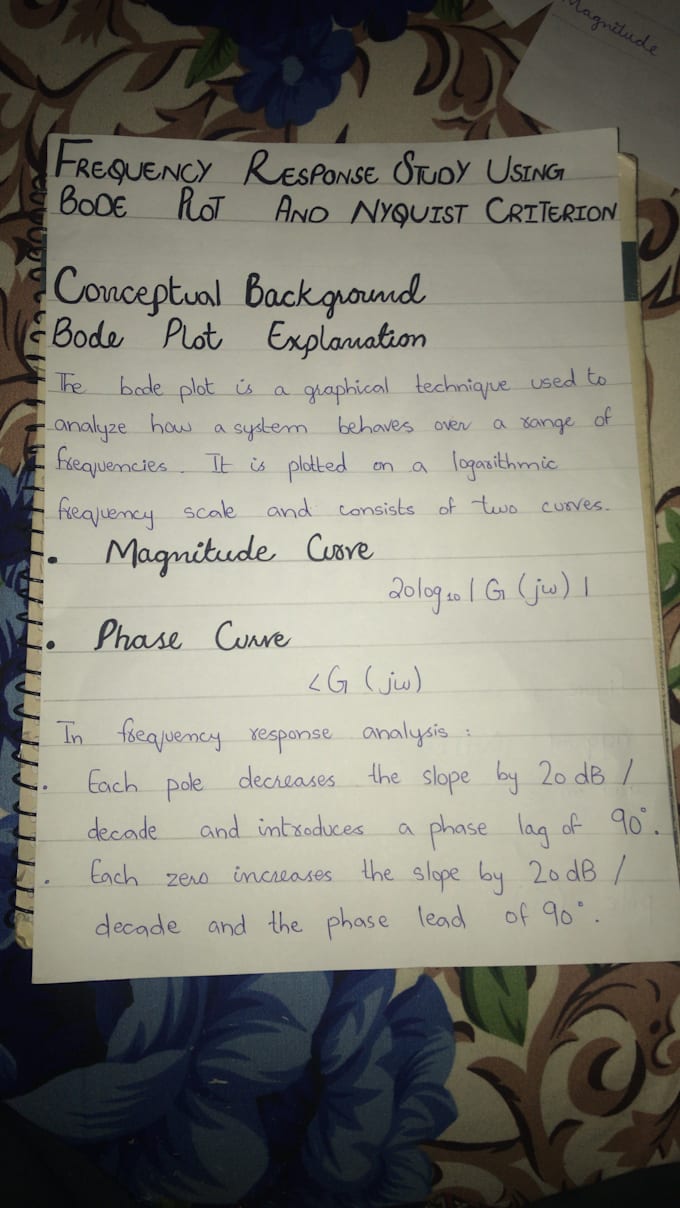 Magnitude
FREQUENCY RESPONSE STUDY USING
BODE PLOT AND NYQUIST CRITERION
Conceptual Background
Bode Plot Explanation
The bode plot is a graphical technique used to
analyze how a system behaves over a range of
frequencies. It is plotted on a logarithmic
frequency scale and consists of two curves.
• Magnitude Curve
20log₁₀ | G (jw) |
• Phase Curve
∠G (jw)
In frequency response analysis :
• Each pole decreases the slope by 20 dB /
decade and introduces a phase lag of 90°.
• Each zero increases the slope by 20 dB /
decade and the phase lead of 90°.